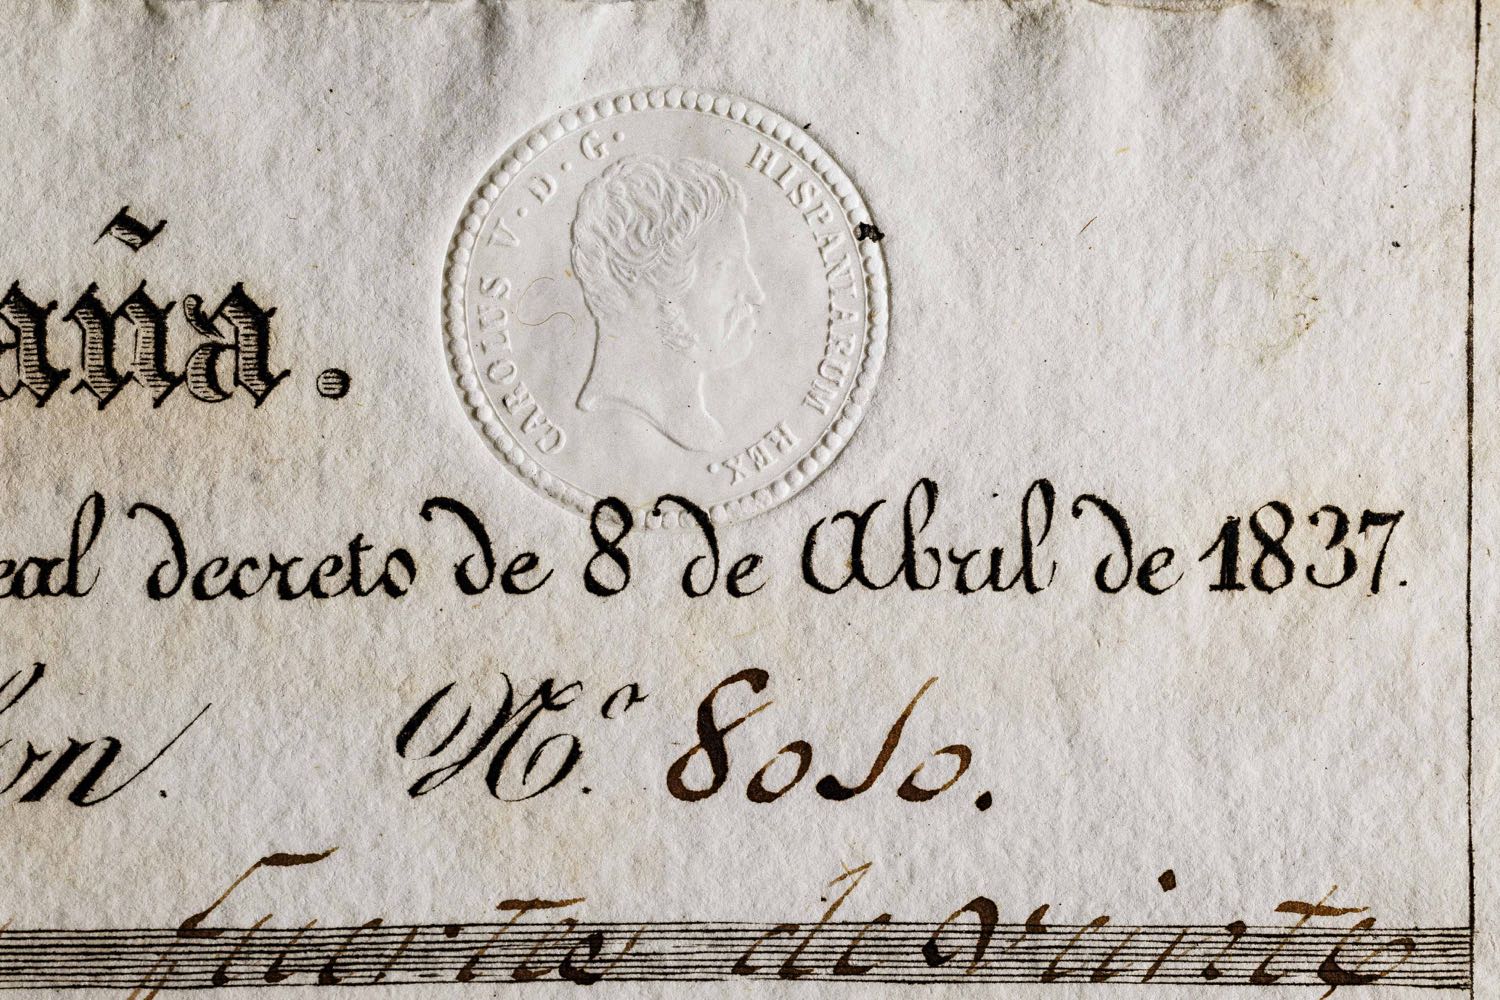 CAROLUS V · D · G · HISPANIARUM REX.
aña.
eal decreto de 8 de Abril de 1837.
on. N.º 8010.
fuertes de veinte